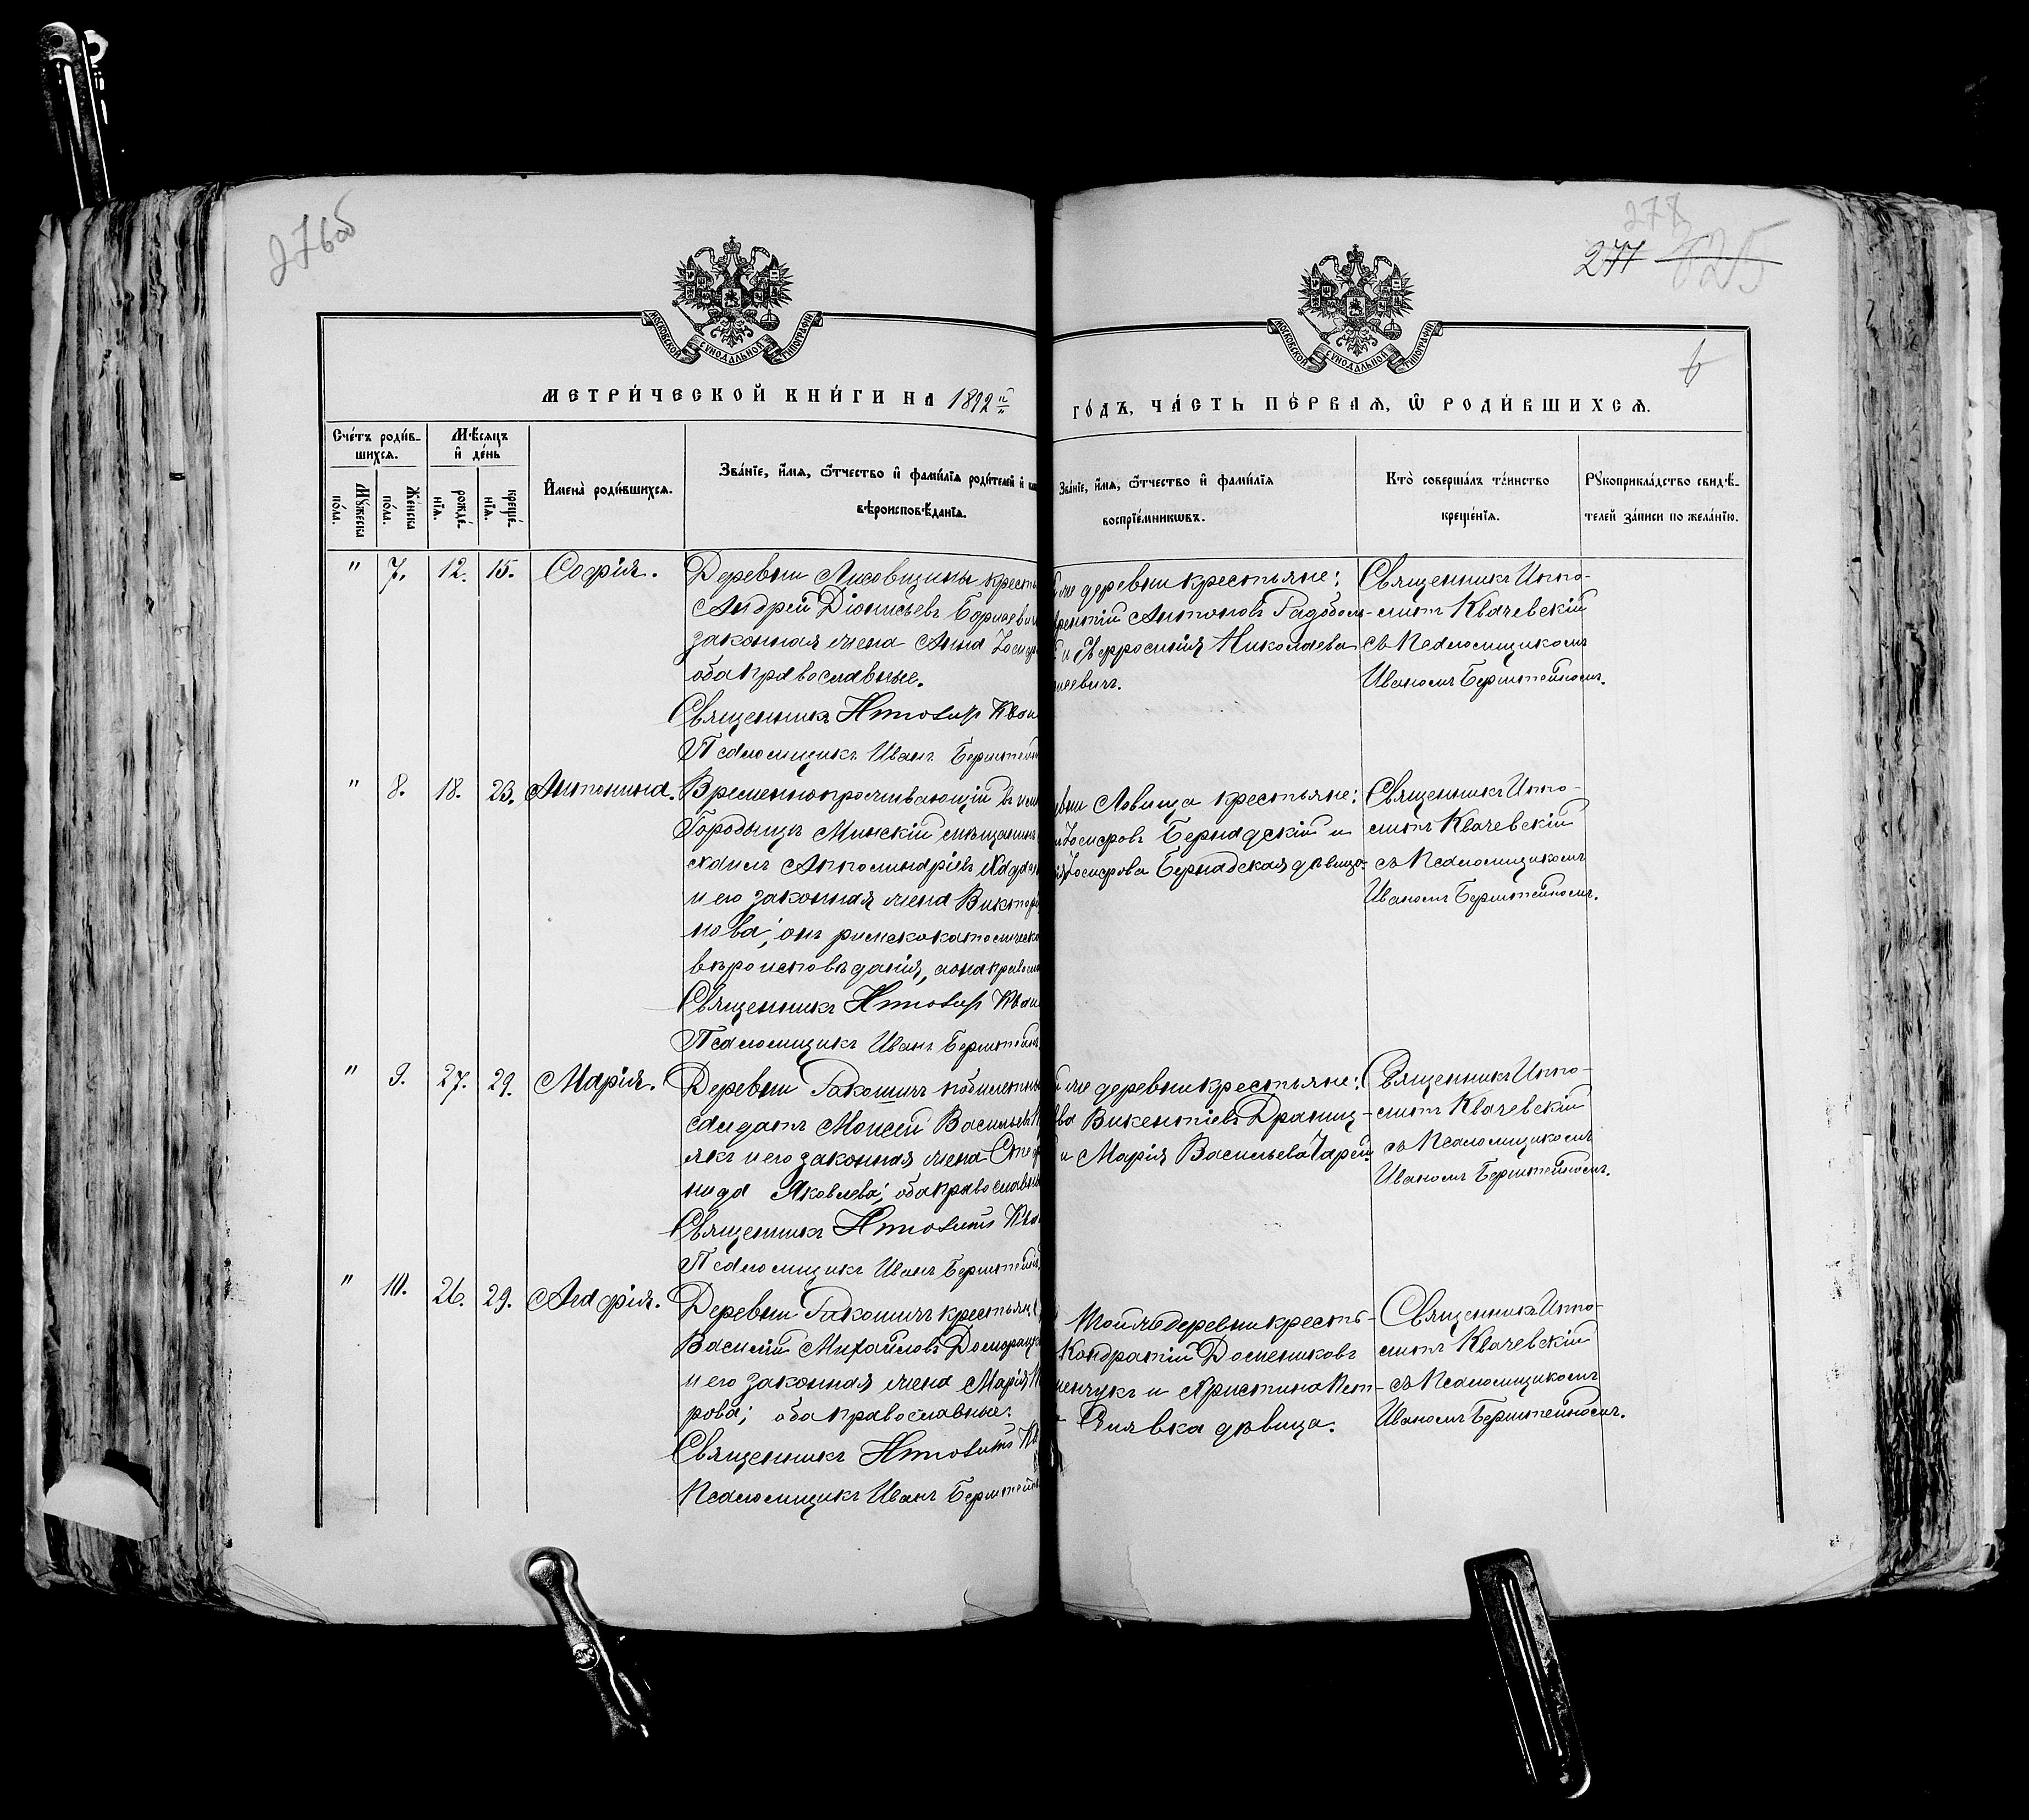 276об
278
277 825
МОСКОВСКОЙ СѴНОДАЛЬНОЙ ТИПОГРАФІИ
МОСКОВСКОЙ СѴНОДАЛЬНОЙ ТИПОГРАФІИ
6
МЕТРИ́ЧЕСКОЙ КНИ́ГИ НА 1892й
ГО́ДЪ, ЧА́СТЬ ПЕ́РВАЯ, Ѽ РОДИ́ВШИХСЯ.
Сче́тъ роди́в-
шихся.
Мꙋжеска
по́ла.
Же́нска
по́ла.
Мѣ́сяцъ
и҆ де́нь
рожде́-
нїя.
креще́-
нїя.
И҆мена̀ роди́вшихся.
Зва́нїе, и҆́мя, ѻ҆́тчество и҆ фами́лїя роди́телей и҆
вѣроисповѣ́данїя.
Зва́нїе, и҆́мя, ѻ҆́тчество и҆ фами́лїя
воспрїе́мникѡвъ.
Кто̀ соверша́лъ та́инство
креще́нїя.
Рꙋкоприкла́дство свидѣ́-
телей за́писи по жела́нїю.
" 7. 12. 15. Софія.
Деревни Лисовщины крестья
Андрей Діонисьевъ
законная жена Анна Іосиф
оба православные.
Священникъ Ипполитъ Квач
Псаломщикъ Иванъ Берштейн
же деревни крестьяне:
Антоновъ
и Евфросинія Николаева
Священникъ Иппо-
литъ Квачевскій
съ Псаломщикомъ
Иваномъ Берштейномъ.
" 8. 18. 23. Антонина.
Временно проживающій въ
Городищъ Минскій мѣщанинъ
и его законная жена Виктор
нова; онъ римскокатолическ
вѣроисповѣданія, а она правосл
Священникъ Ипполитъ Квач
Псаломщикъ Иванъ Берштейнъ
Ловища крестьяне:
Іосифовъ Бернадскій и
Іосифова Бернадская дѣвица.
Священникъ Иппо-
литъ Квачевскій
съ Псаломщикомъ
Иваномъ Берштейномъ.
" 9. 27. 29. Марія.
Деревни Гакошичъ побилетный
солдатъ Моисей Васильевъ
якъ и его законная жена Степ
нида Яковлева; оба православны
Священникъ Ипполитъ Ква
Псаломщикъ Иванъ Берштейнъ
же деревни крестьяне:
Викентіевъ Драниц-
и Марія Васильева
Священникъ Иппо-
литъ Квачевскій
съ Псаломщикомъ
Иваномъ Берштейномъ.
" 10. 26. 29. Агафія.
Деревни Гакошичъ крестьян
Василій Михайловъ Доморацк
и его законная жена Марія
рова; оба православные.
Священникъ Ипполитъ Кв
Псаломщикъ Иванъ Берштейн
Той же деревни кресть-
Кондратій
и Христина Пет-
дѣвица.
Священникъ Иппо-
литъ Квачевскій
съ Псаломщикомъ
Иваномъ Берштейномъ.